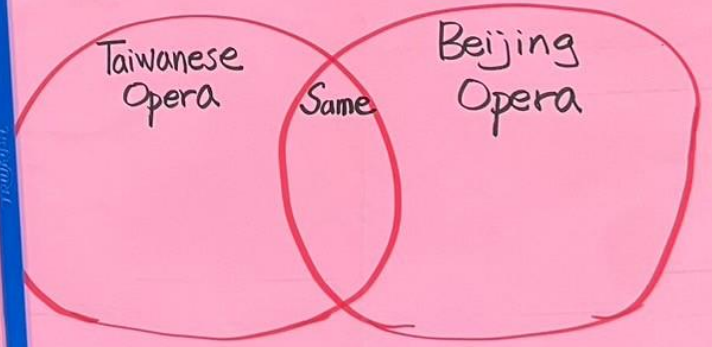 Taiwanese
Opera
Same
Beijing
Opera